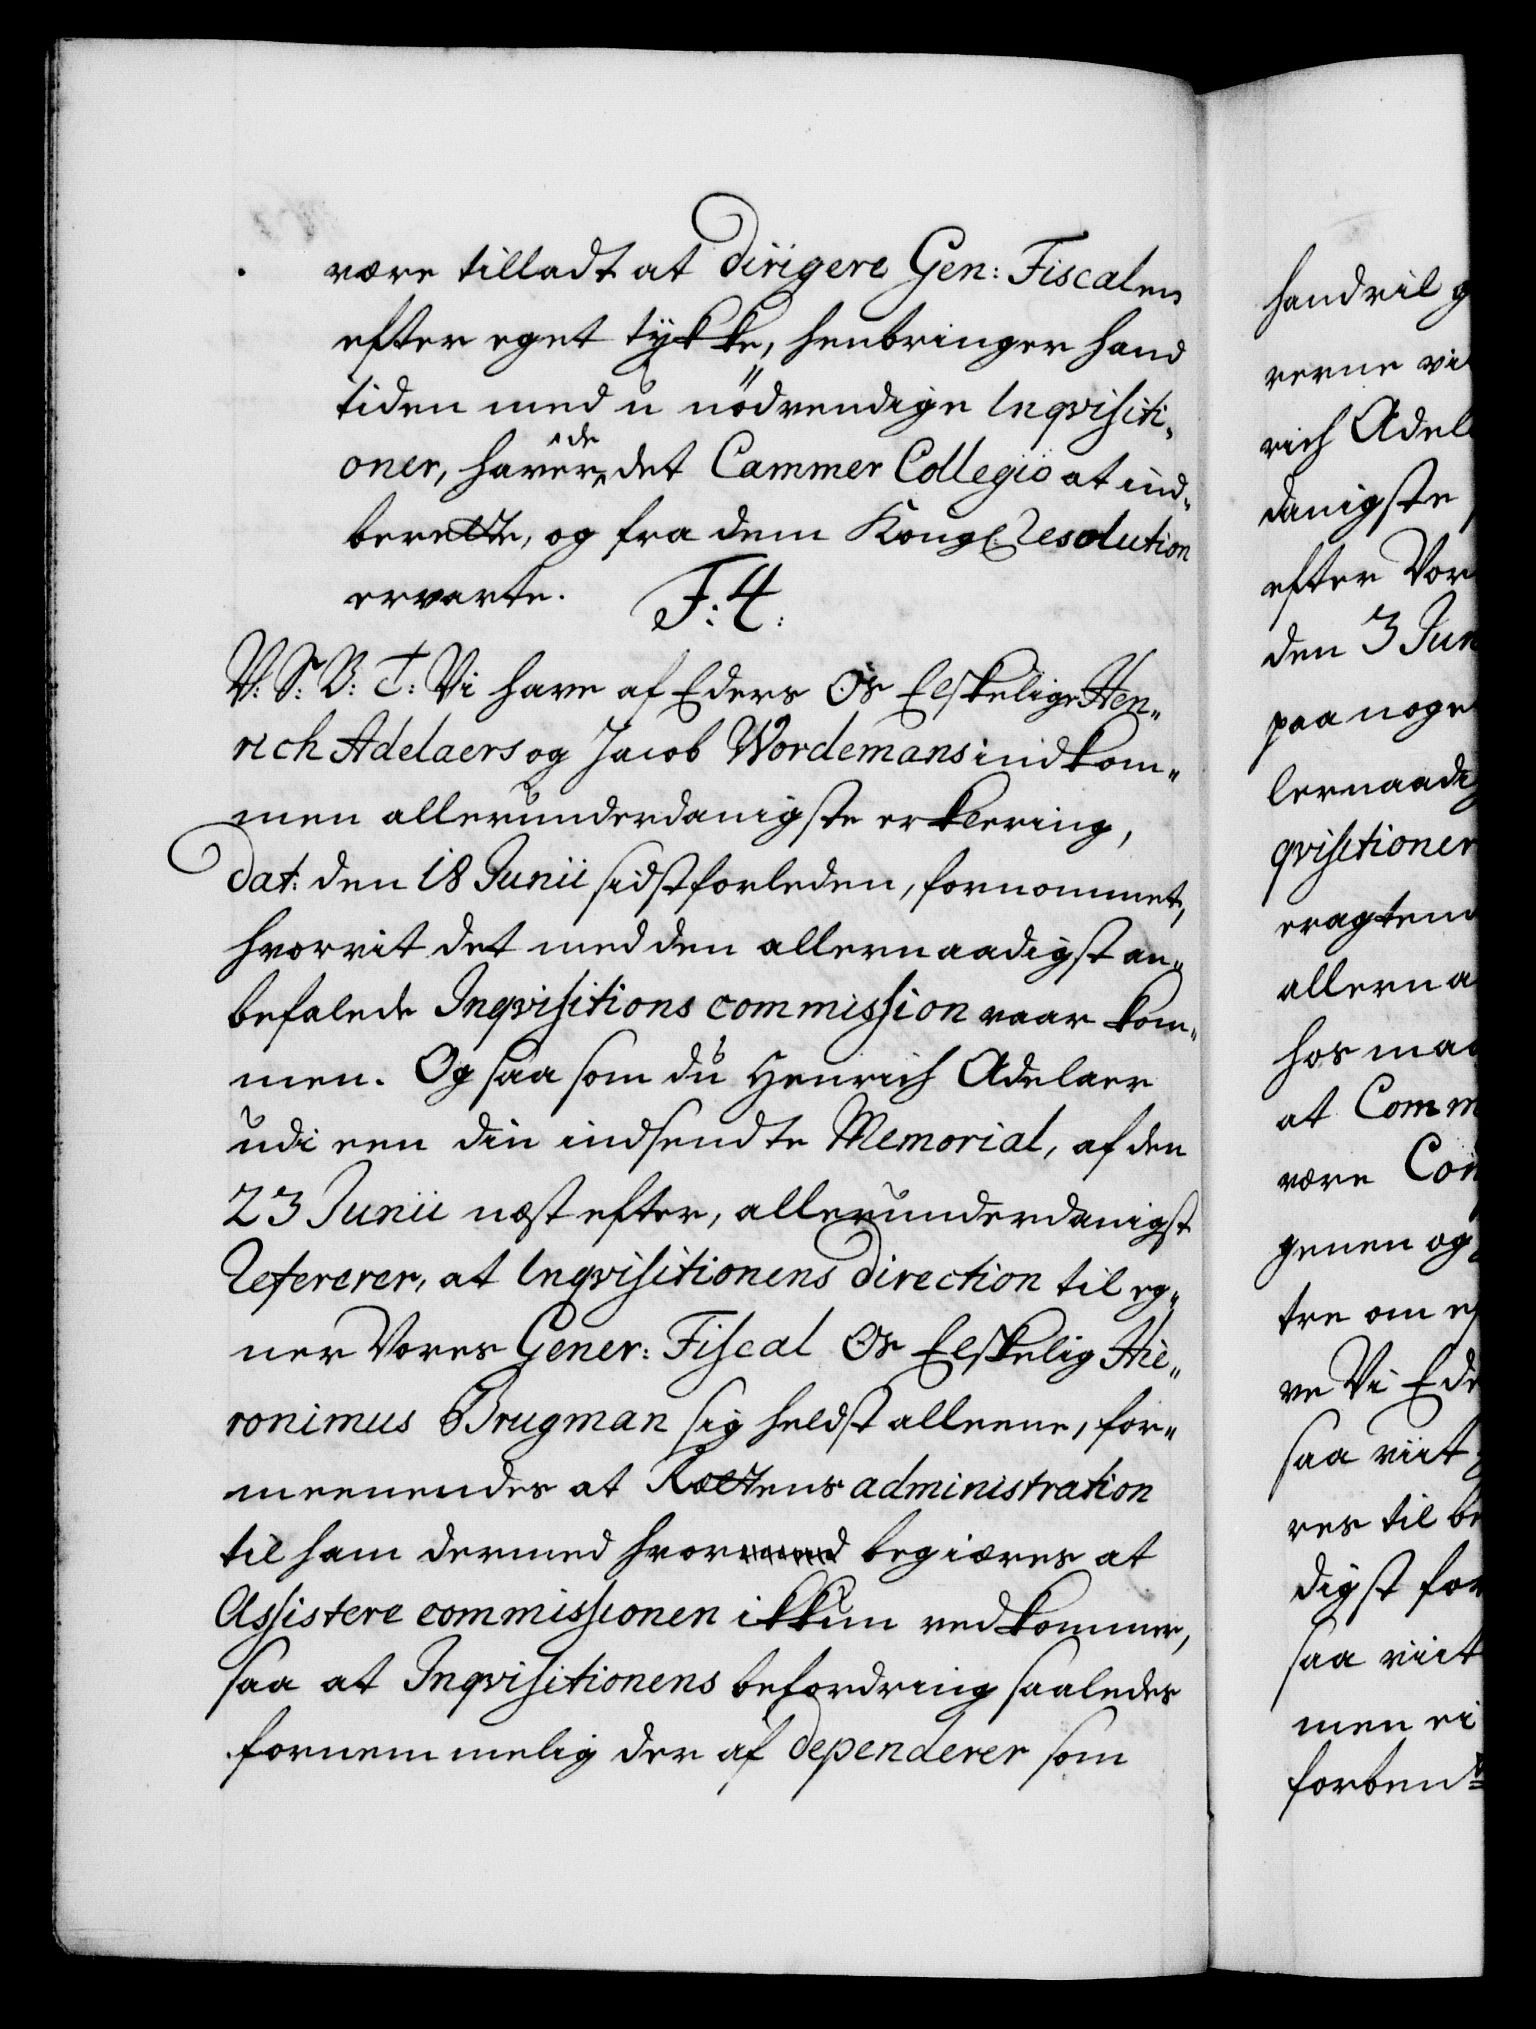 være tilladt at dirigere Gen: Fiscalen
efter eget tykke, henbringer hand
tiden med unödvendige Inqvisiti-
oner, haver de det Cammer Collegio at ind-
berette, og fra dem Kongl. Resolution
ervarte.
F: 4:
V: S: B: T: Vi have af Eders Os Elskelige Hen-
rich Adelaers og Jacob Wordemans indkom-
men allerunderdanigste erklering,
dat: den 18 Junii sidstforleden, fornommet,
hvorvit det med den allernaadigst an-
befalede Inqvisitions commission vaar kom-
men. Og saasom du Henrich Adelaer
udi een din indsendte Memorial, af den
23 Junii næst efter, allerunderdanigst
Refererer, at Inqvisitionens direction til eg-
ner Vores Gener: Fiscal Os Elskelig Hie-
ronimus Brugman sig heldst alleene, for-
meenendes at Rættens administration
til ham dermed hvor begiæres at
Assistere commissionen ikkun vedkommer,
saa at Inqvisitionens befordring saaledes
fornemmelig der af dependerer som
hand vil g
verne vi
rich Adel
danigste
efter Vor
den 3 Jun
paa noge
lernaadig
qvisitioner
eragten
allerna
hos maa
at Comm
være Con
genen og
tre om ef
ve Vi Ede
saa viit
res til be
digst for
saa viit
men ei
forben